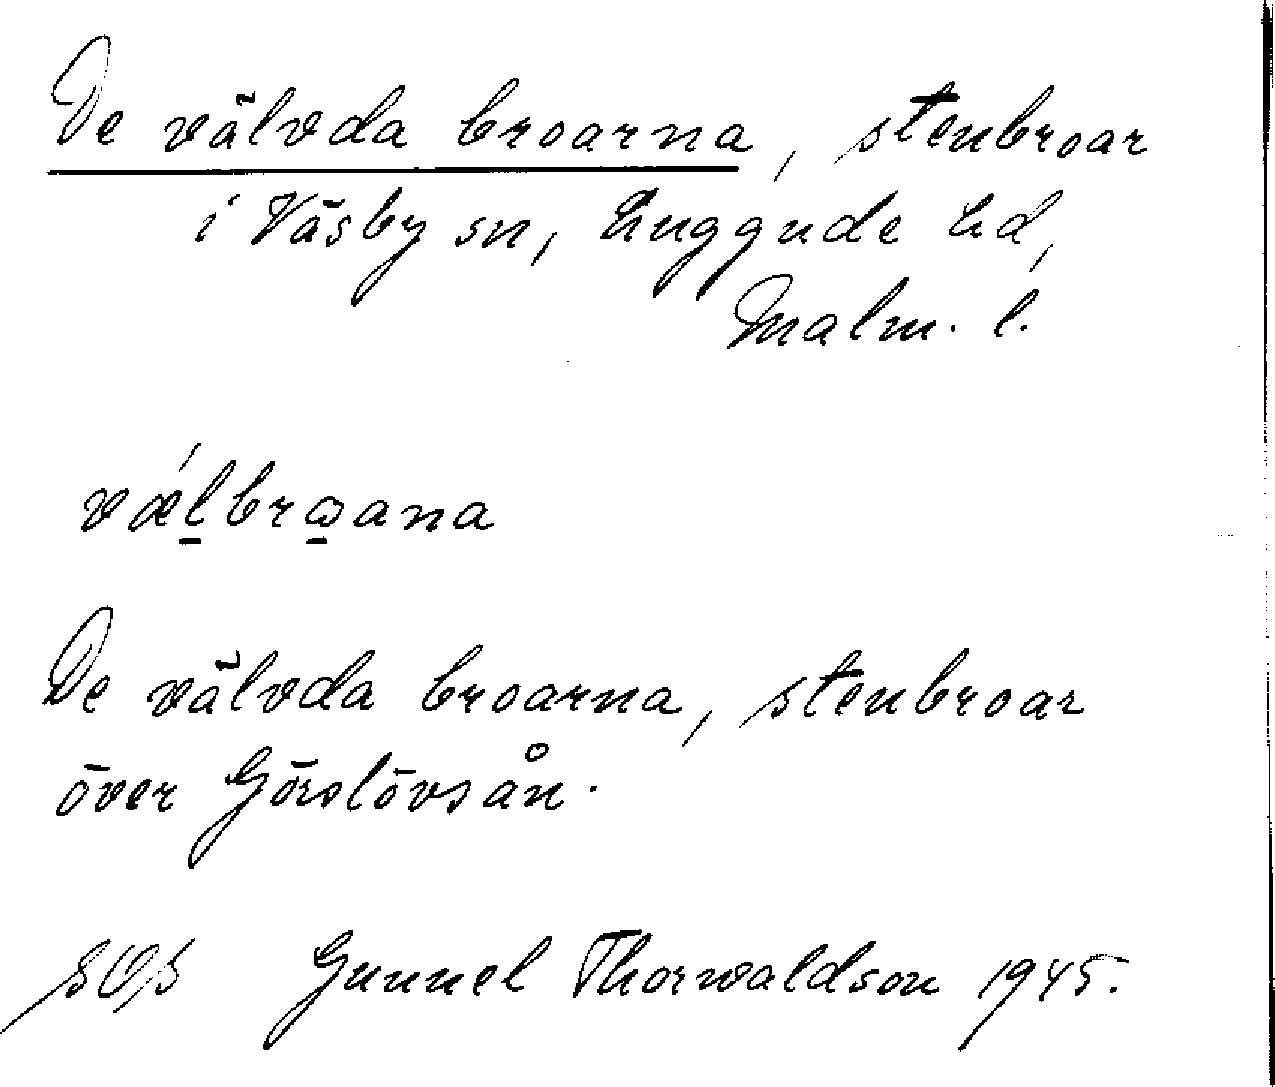 De välvda broarna, stenbroar
i Väsby sn, Luggude hd,
Malm. l.
vǽl̠brω̠ana
De välvda broarna, stenbroar
över Görslövsån.
SOS Gunnel Thorwaldson 1945.